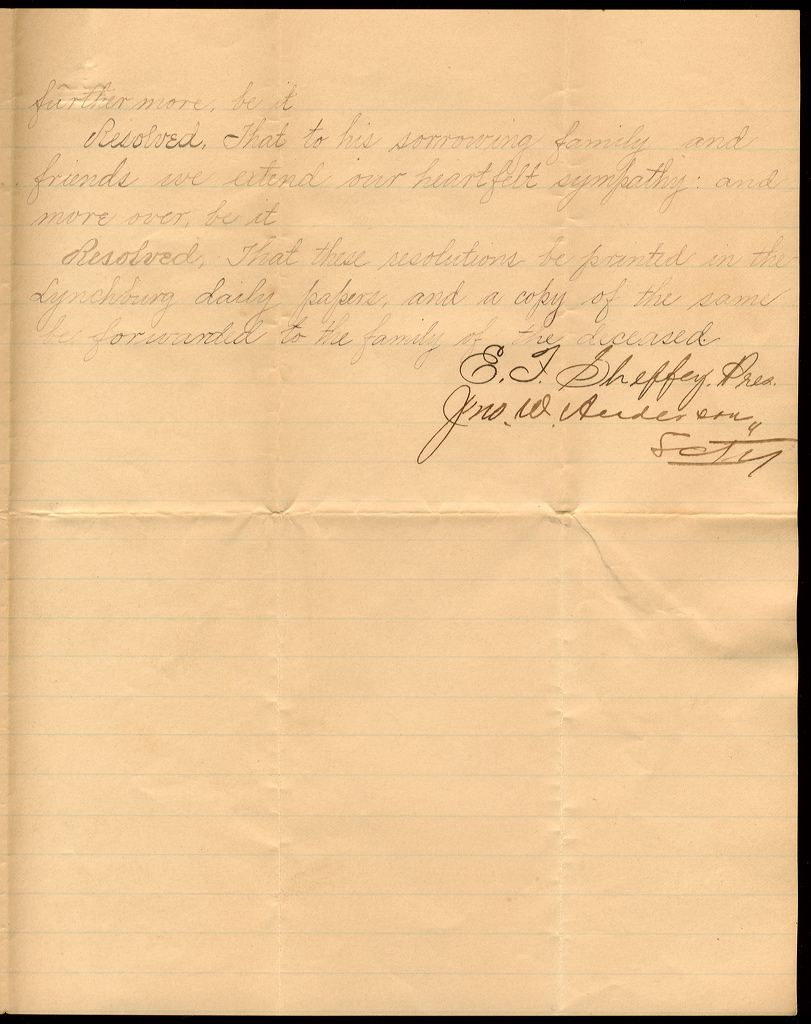 further more, be it
Resolved, That to his sorrowing family and
friends we extend our heartfelt sympathy: and
more over, be it
Resolved, That these resolutions be printed in the
Lynchburg daily papers, and a copy of the same
be forwarded to the family of the deceased.
E. T. Sheffey. Pres.
Jno. W. Anderson,,
Scty